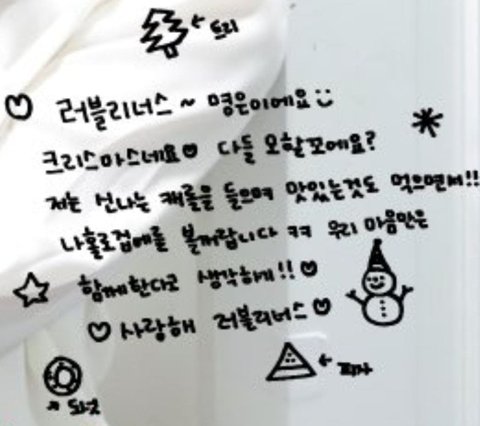 트리
러블리너스~ 명은이에요
크리스마스네요 다들 모할꼬에요?
저는 신나는 캐롤을 들으며 맛있는것도 먹으면서!!
나홀로집에를 볼꺼랍니다 ㅋㅋ 우리 마음만은
함께한다고 생각하게!!
사랑해 러블리너스
피자
도넛